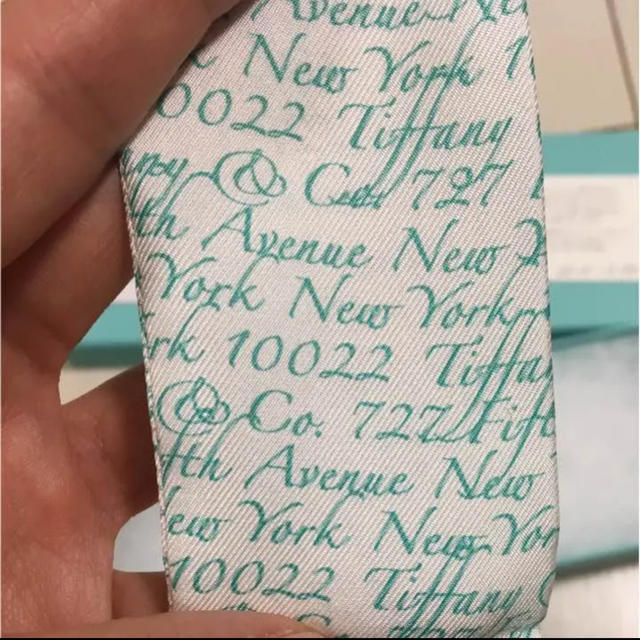 Avenue Ne
New York 1
0022 Tiffany
ny & Co. 727
th Avenue New
York New York
rk 10022 Tiffa
& Co. 727 Fift
fth Avenue New
ew York New Yor
10022 Tiffany